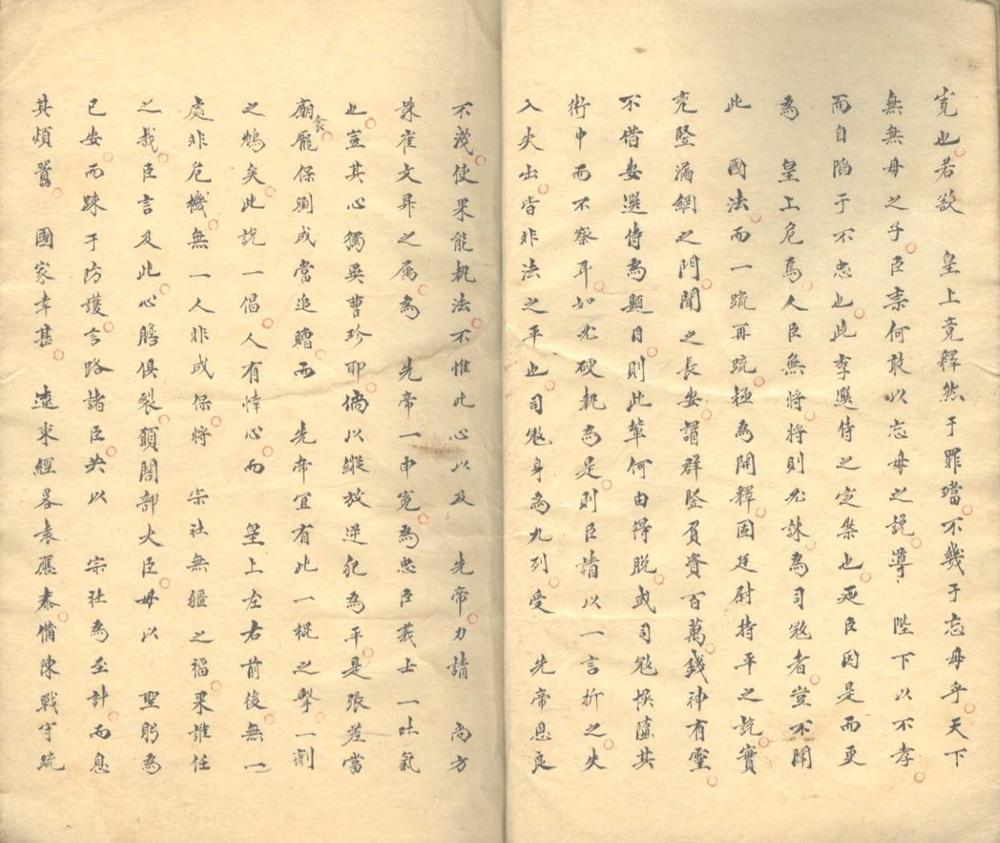 寃也若欲　皇上竟釋然于罪璫不幾于忘母乎天下
無無母之子臣柰何敢以忘母之説導　陛下以不孝
而自陷于不忠也此李選侍之定案也更臣因是而更
為　皇上危焉人臣無將將則允誅為司寇者豈不聞
此　國法而一疏再疏極為開釋固廷尉持平之說實
竞竪漏網之門聞之長安謂群竪負資百萬錢神有靈
不借安選侍為題目則此輩何由得脱或司寇悮隨其
術中而不察耳如允硬執為是則臣請以一言折之失
入失出皆非法之平也司寇身為九列受　先帝恩良
不淺使果能執法不惟此心以及　先帝力請　尚方
誅崔文昇之属為　先帝一申寃為忠臣義士一吐氣
也豈其心獨異曹珍耶倘以縱放逆犯為平是張差當
廟食龎保劉成當追贈而　先帝宜有此一棍之擊一劑
之鴆矣此説一倡人有悻心而　皇上左右前後無一
處非危機無一人非成保將　宗社無疆之福果誰任
之哉臣言及此心膽俱裂願閣部大臣毋以　聖躬為
已安而踈于防護言路諸臣共以　宗社為至計而息
其煩囂　國家幸甚　遼東經畧袁應泰備陳戰守疏